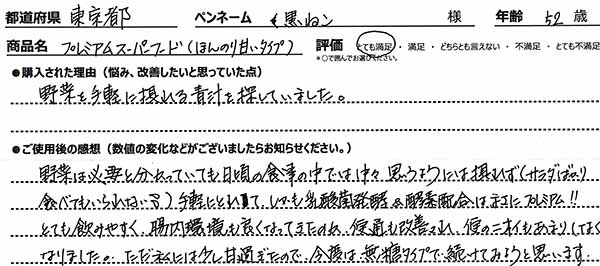 都道府県 東京都 ペンネーム 黒ねこ 様 年齢 52 歳
商品名 プレミアムスーパーフード(ほんのり甘いタイプ) 評価 とても満足 ・ 満足 ・ どちらとも言えない ・ 不満足 ・ とても不満足
*○で囲んでお選びください。
●購入された理由(悩み、改善したいと思っていた点)
野菜を手軽に摂れる青汁を探していました。
●ご使用後の感想(数値の変化などがございましたらお知らせください。)
野菜は必要と分かっていても日頃の食事の中では中々思うようには摂れず(サラダばかり
食べてもいられない)手軽にとれて、しかも乳酸菌発酵&酵素配合はまさにプレミアム!!
とても飲みやすく、腸内環境も良くなってきたのか、便通も改善され、便のニオイもあまりしなく
なりました。ただ私には少し甘過ぎたので、今度は無糖タイプで続けてみようと思います